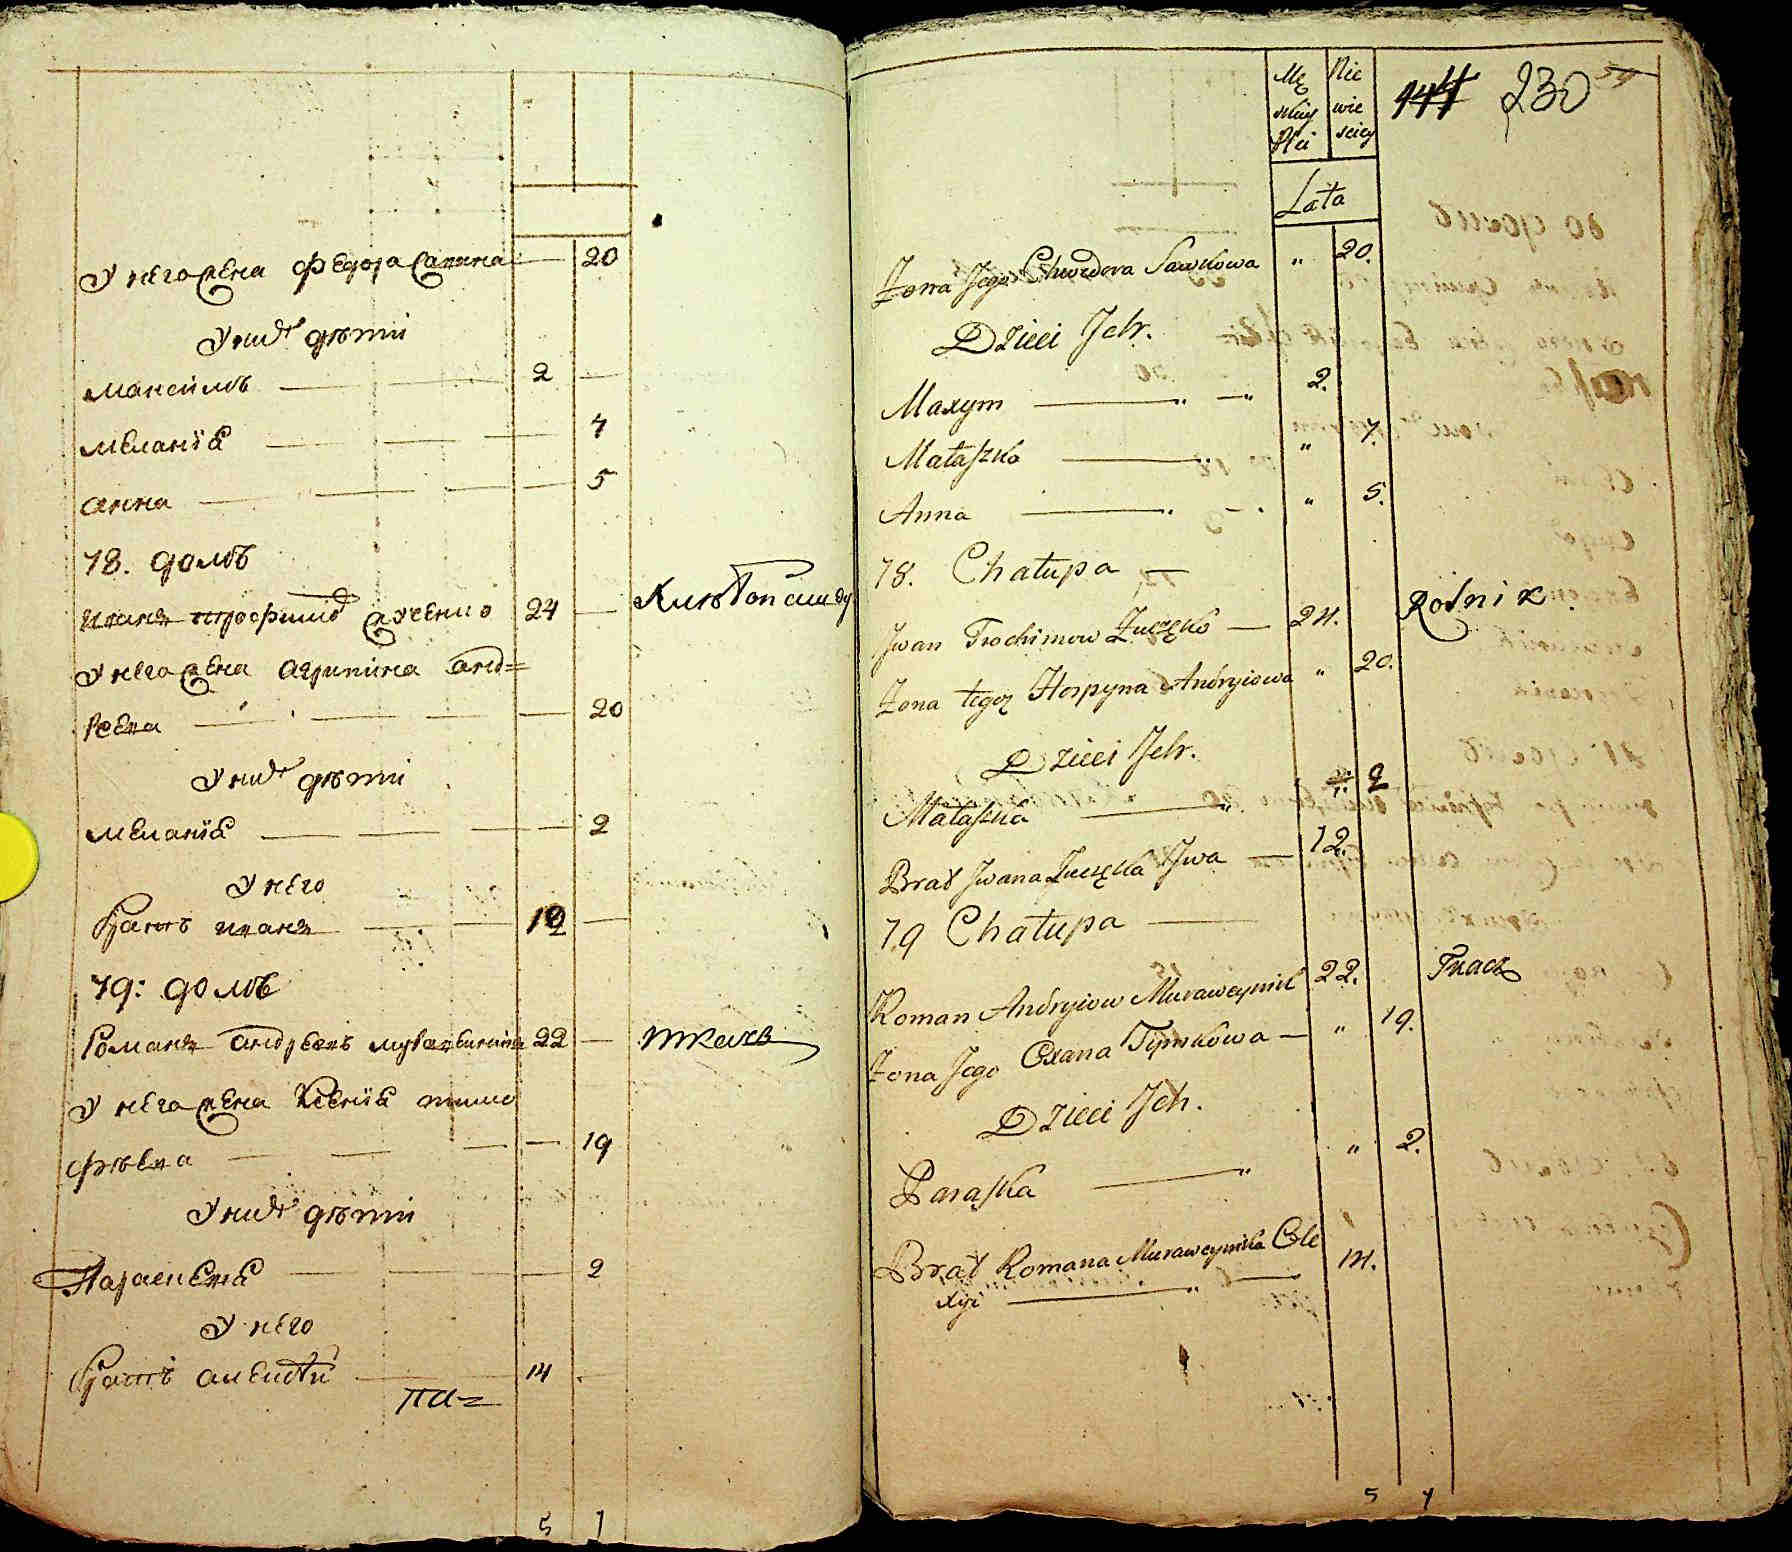 У него жена федора савина — 20
У них дѣти
максимъ — 2 —
меланія — 7
анна — 5
78. домъ
иванъ трофимовъ 24 —
У него жена агрипина анд=
реева — 20
У них дѣти
меланія — 2
У него
братъ иванъ — 12 —
79: домъ
романъ андреевъ 22 — ткачь
У него жена ксенія тимо
фѣева — 19
У них дѣти
Параскевія — 2
У него
братъ алексѣй — 14
5 7
Mę Nie 144 230 59
skiey wie
Płci sciey
Lata
Żona Jego Chwedora Sawkowa " 20.
Dzieci Ich.
Maxym — " — " 2.
Małaszka — " 7.
Anna — " 5.
78. Chałupa —
Jwan Trochimow Żuczęko — 24. Rolnik
Żona tegoż Hospyna Andryiowa " 20.
Dzieci Ich.
Małaszka — " 2
Brat Jwana Żuczęka Jwa — 12.
79 Chałupa —
Roman Andryiow Muraweynik 22. Tkacz
Żona Jego Oxana Tymkowa — " 19.
Dzieci Ich.
Paraska — " " 2.
Brat Romana Murawcynika Ole 14.
xiy — "
5 7